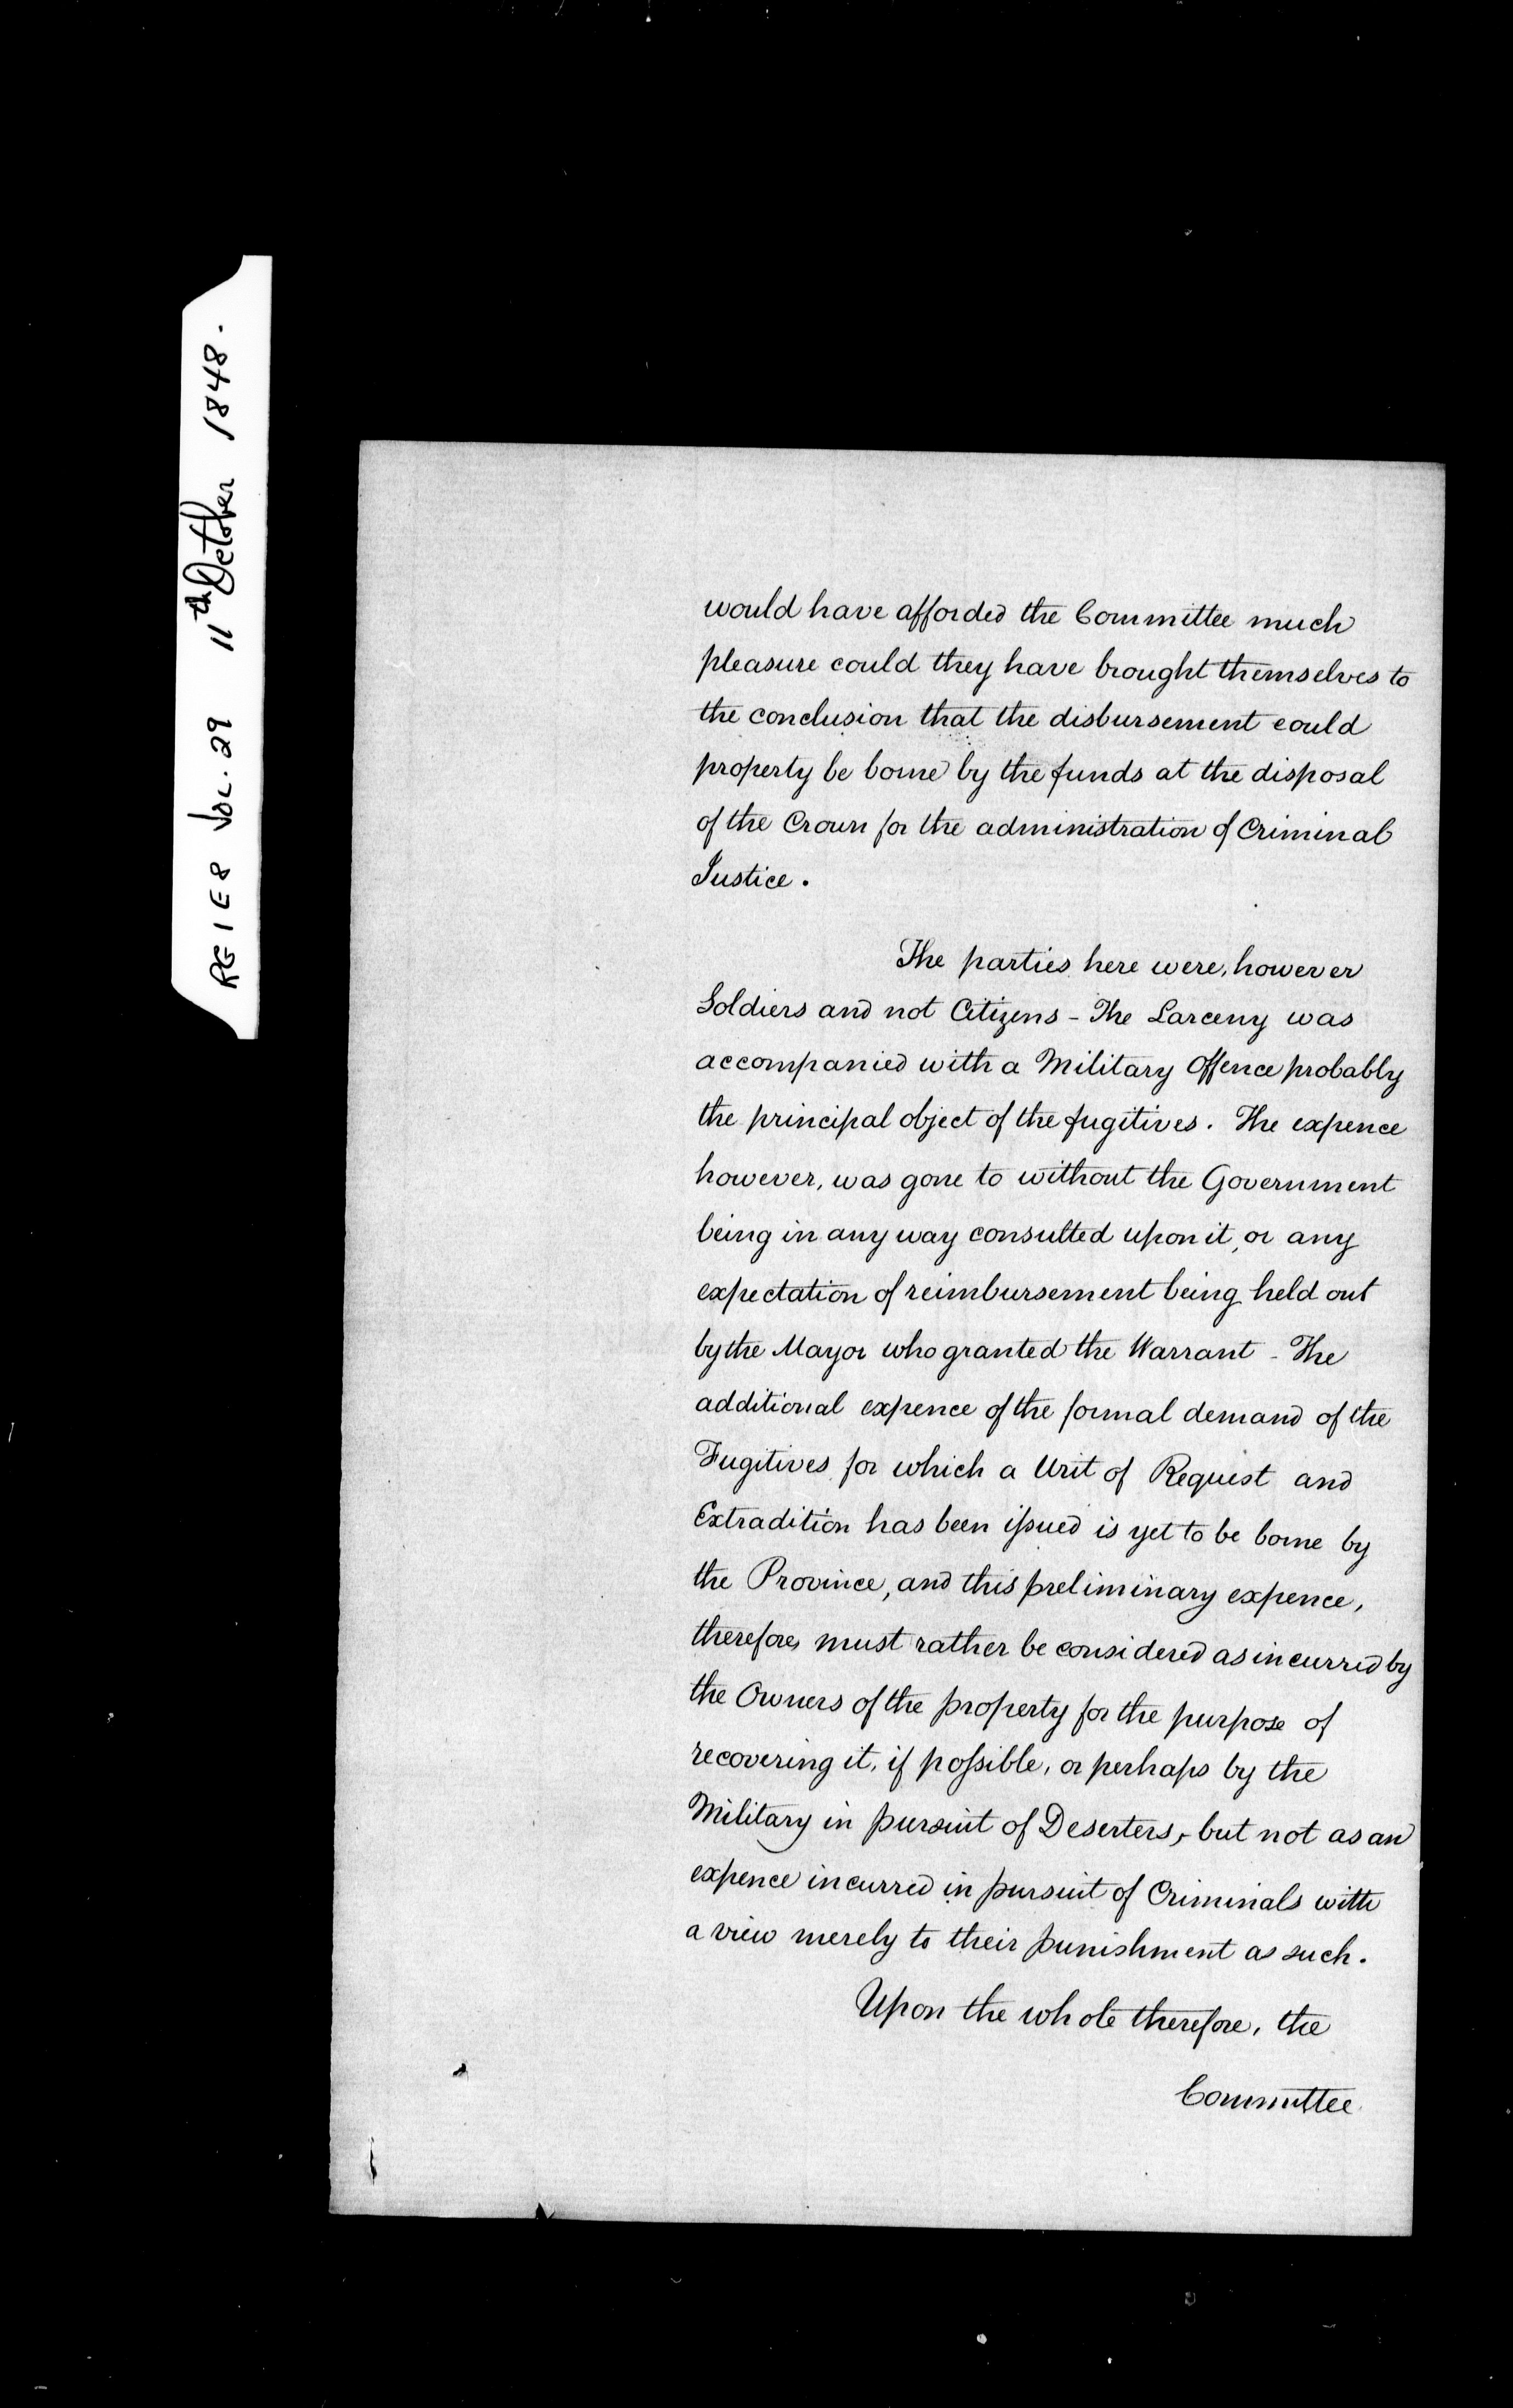 RG 1 E 8 VOL. 29 11th October 1848.
would have afforded the Committee much
pleasure could they have brought themselves to
the conclusion that the disbursement could
property be borne by the funds at the disposal
of the Crown for the administration of Criminal
Justice.
The parties here were, however
Soldiers and not Citizens - The Larceny was
accompanied with a Military Offence probably
the principal object of the fugitives. The expence
however, was gone to without the Government
being in any way consulted upon it, or any
expectation of reimbursement being held out
by the Mayor who granted the Warrant - The
additional expence of the formal demand of the
Fugitives for which a Writ of Request and
Extradition has been issued is yet to be borne by
the Province, and this preliminary expence,
therefore, must rather be considered as incurred by
the Owners of the property for the purpose of
recovering it, if possible, or perhaps by the
Military in pursuit of Deserters, - but not as an
expence incurred in pursuit of Criminals with
a view merely to their punishment as such.
Upon the whole therefore, the
Committee